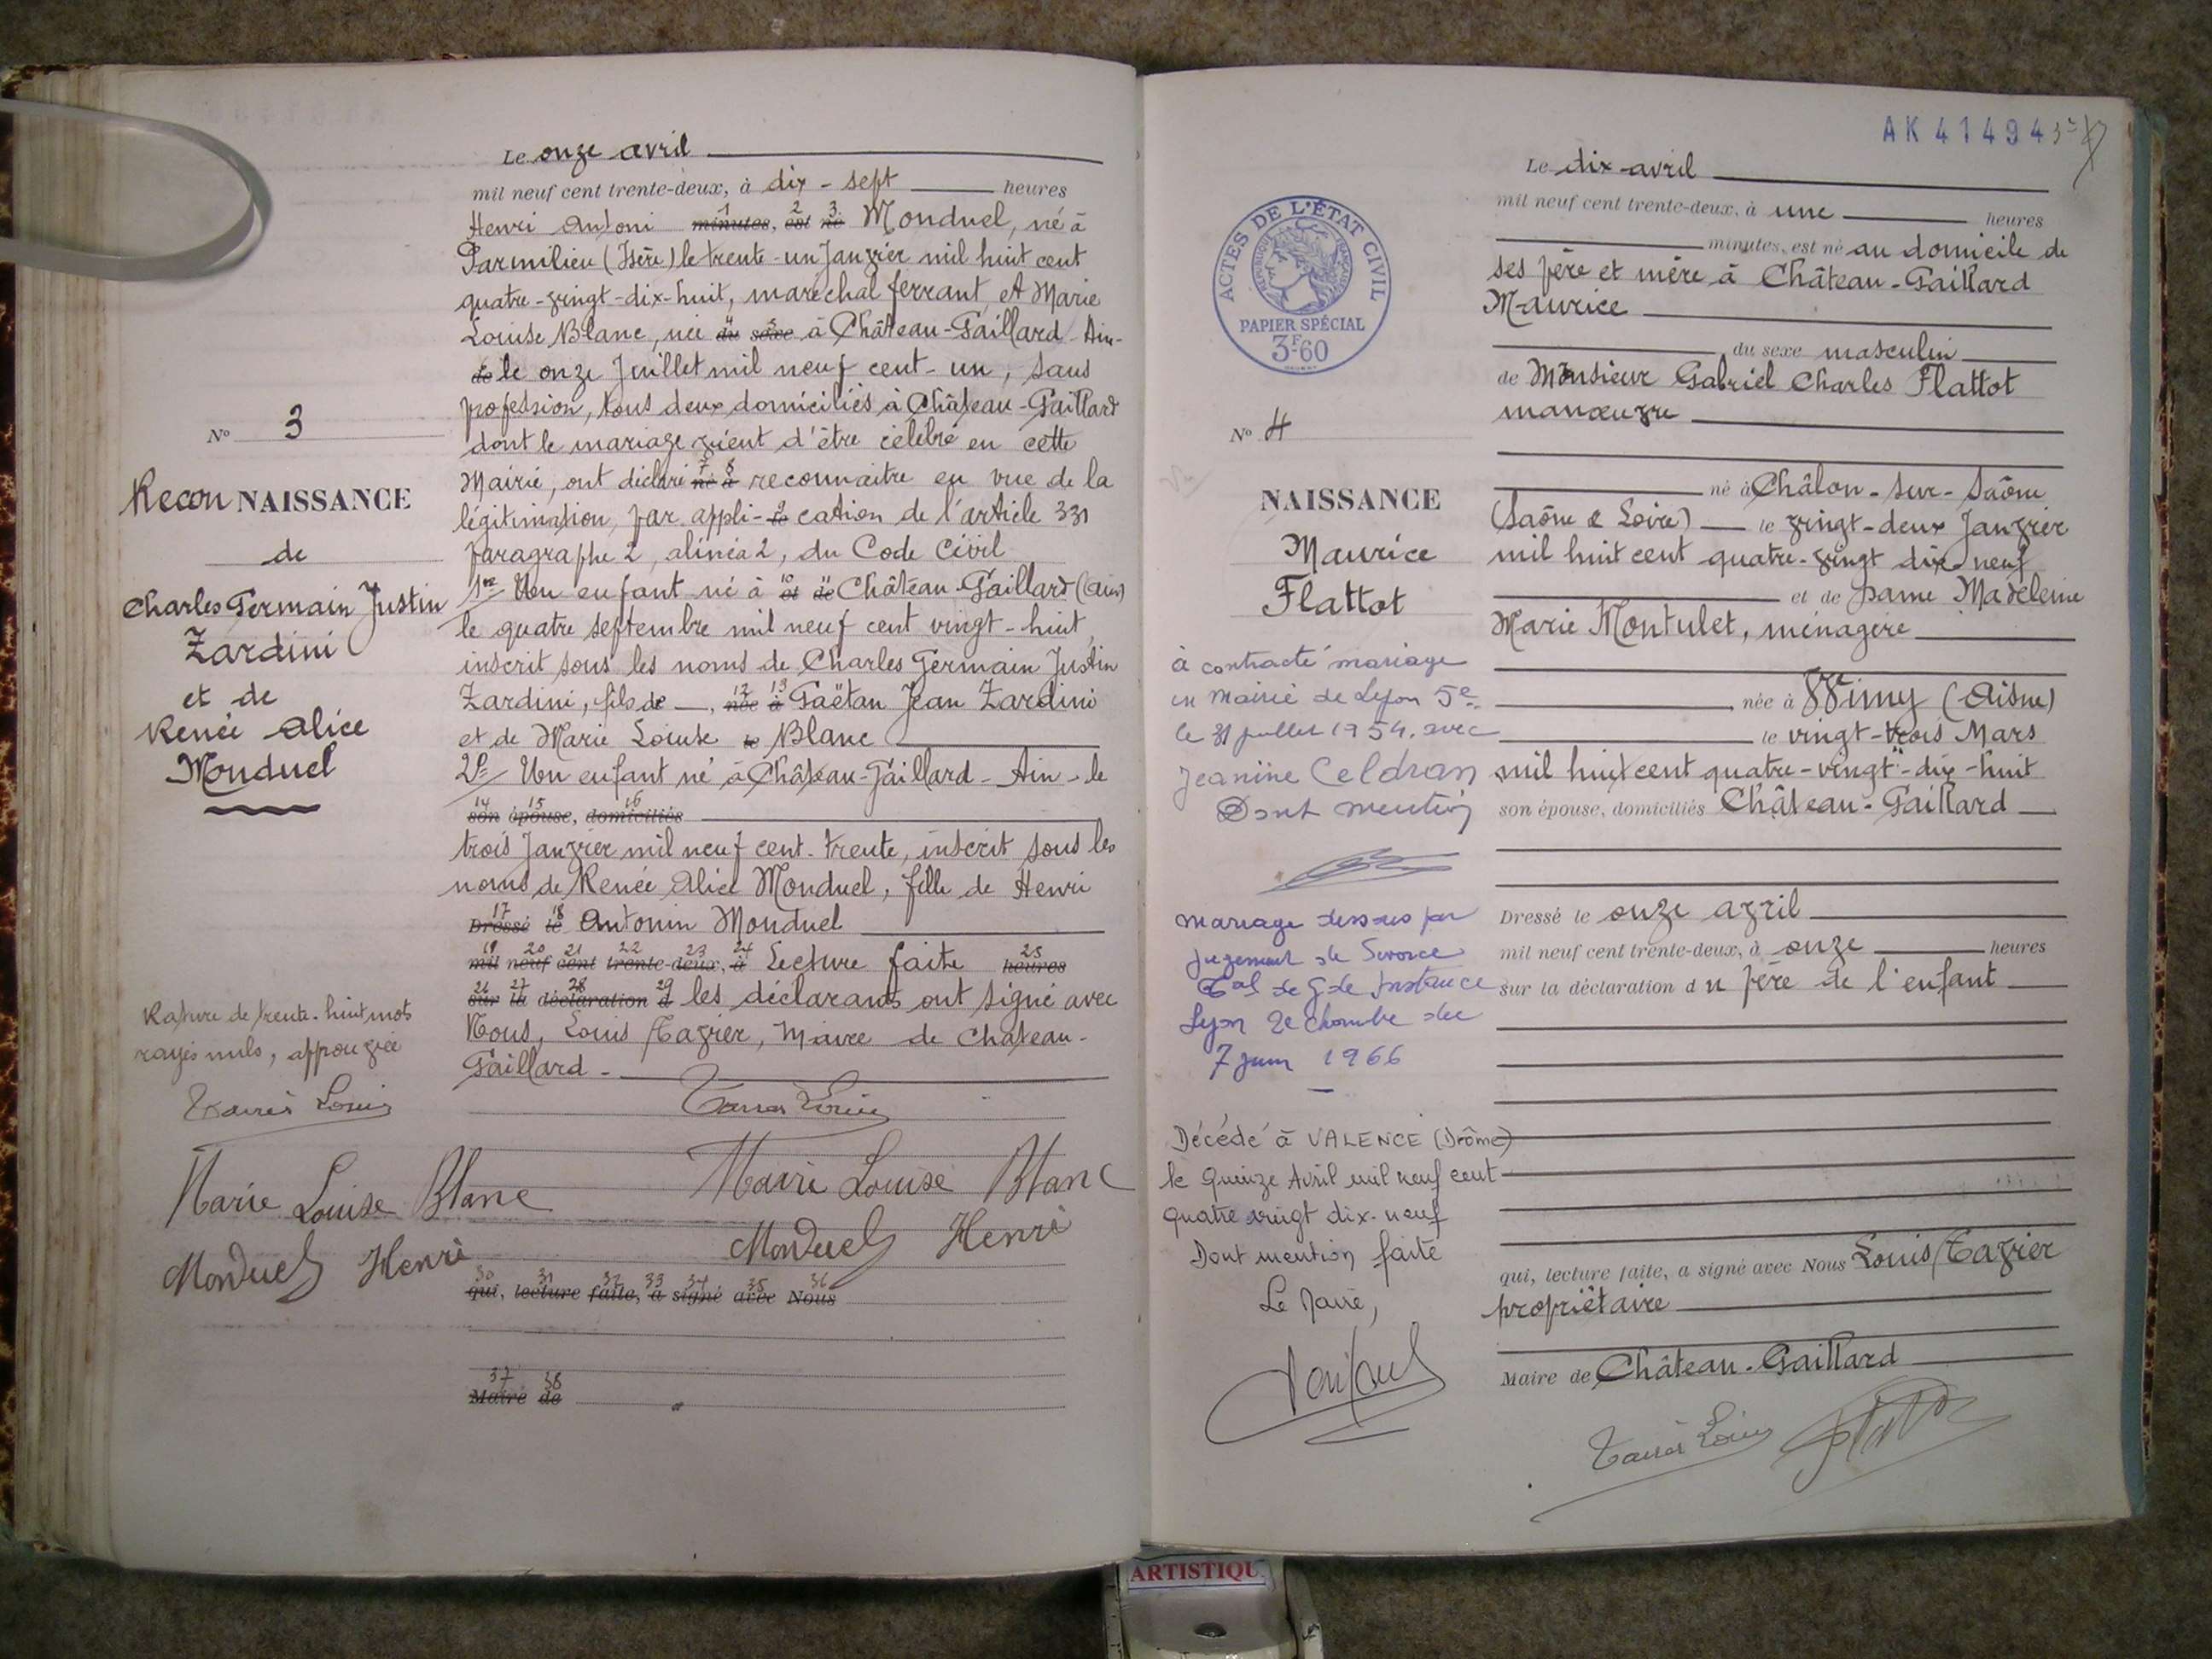 Le onze avril
mil neuf cent trente-deux, à dix-sept heures
Henri Antoni minutes, est né Monduel, né à
Parmilieu (Isère) le trente-un Janvier mil huit cent
quatre-vingt-dix-huit, maréchal ferrant, et Marie
Louise Blanc, née du sexe à Château-Gaillard-Ain-
de le onze Juillet mil neuf cent-un, sans
profession, tous deux domiciliés à Château-Gaillard
dont le mariage vient d'être célébré en cette
Mairie, ont déclaré né à reconnaitre en vue de la
légitimation, par appli- le cation de l'article 331
paragraphe 2, alinéa 2, du Code Civil
1er Un enfant né à et de Château-Gaillard (Ain)
le quatre septembre mil neuf cent vingt-huit,
inscrit sous les noms de Charles Germain Justin
Zardini, fils de —, née à Gaëtan Jean Zardini
et de Marie Louise le Blanc
2e Un enfant né à Château-Gaillard-Ain-le
son épouse, domiciliés
trois Janvier mil neuf cent-trente, inscrit sous les
noms de Renée Alice Monduel, fille de Henri
Dressé le Antonin Monduel
mil neuf cent trente-deux, à Lecture faite heures
sur la déclaration d les déclarants ont signé avec
Nous, Louis Tavier, Maire de Château-
Gaillard-
N° 3
Recon NAISSANCE
de
Charles Germain Justin
Zardini
et de
Renée Alice
Monduel
Rature de trente-huit mots
rayés nuls, approuvée
Marie Louise Blanc
Monduel Henri
Marie Louise Blanc
Monduel Henri
qui, lecture faite, a signé avec Nous
Maire de
AK 41494
ACTES DE L'ÉTAT CIVIL
RÉPUBLIQUE FRANÇAISE
PAPIER SPÉCIAL
3F60
N° 4
NAISSANCE
Maurice
Flattot
à contracté mariage
en mairie de Lyon 5e
le 31 juillet 1954, avec
Jeanine Celdran
Dont mention
mariage dissous par
jugement de Divorce
Tal de Gde Instance
Lyon 2e chambre du
7 juin 1966
Décédé à VALENCE (Drôme)
le Quinze Avril mil neuf cent
quatre vingt dix-neuf
Dont mention faite
Le Maire,
Le dix-avril
mil neuf cent trente-deux, à une heures
minutes, est né au domicile de
ses père et mère à Château-Gaillard
Maurice
du sexe masculin
de Monsieur Gabriel Charles Flattot
manœuvre
né à Châlon-sur-Saône
(Saône & Loire) le vingt-deux Janvier
mil huit cent quatre-vingt dix-neuf
et de Dame Madeleine
Marie Montulet, ménagère
née à Wimy (Aisne)
le vingt-trois Mars
mil huit cent quatre-vingt-dix-huit
son épouse, domiciliés Château-Gaillard
Dressé le onze avril
mil neuf cent trente-deux, à onze heures
sur la déclaration du père de l'enfant
qui, lecture faite, a signé avec Nous Louis Tavier
propriétaire
Maire de Château-Gaillard
ARTISTIQU